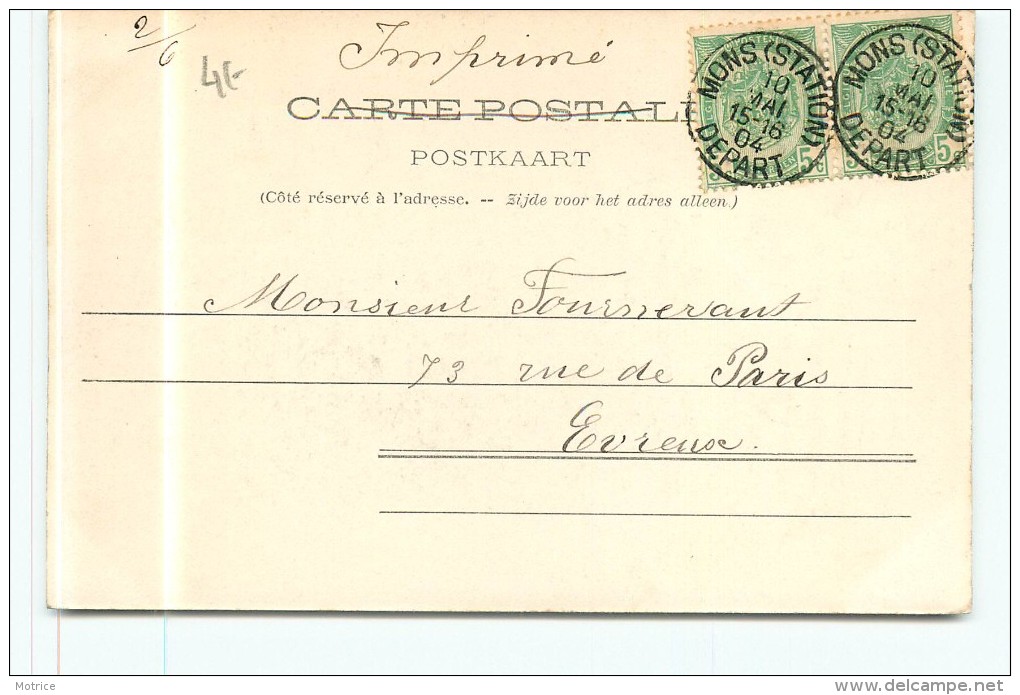 2/6
4-
Imprimé
CARTE POSTALE
POSTKAART
(Côté réservé à l'adresse. -- Zijde voor het adres alleen.)
MONS (STATION)
10
MAI
15-16
04
DEPART
5
MONS (STATION)
10
MAI
15-16
04
DEPART
5
Monsieur Fournerant
73 rue de Paris
Evreux.
Motrice
www.delcampe.net